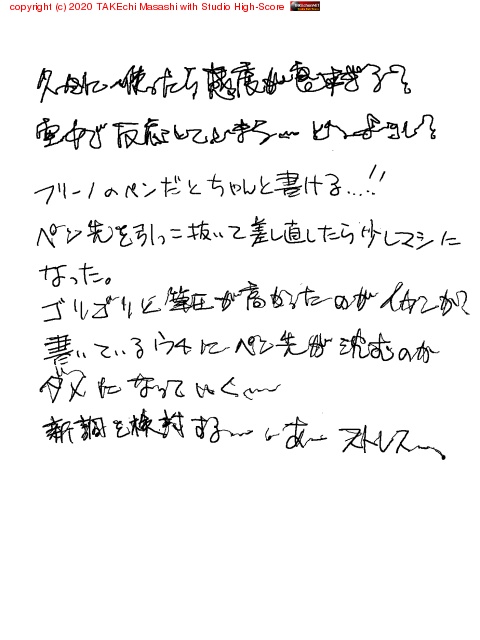 copyright (c) 2020 TAKEchi Masashi with Studio High-Score
久々に使ったら感度が良すぎる?
空中で反応してしまう… どうしよう?
フリーノのペンだとちゃんと書ける…!!
ペン先を引っこ抜いて差し直したら少しマシに
なった。
ゴリゴリと筆圧が高かったのがイカンか?
書いているウチにペン先が沈むのか
ダメになっていく…
新調を検討する… ああ… ストレス…